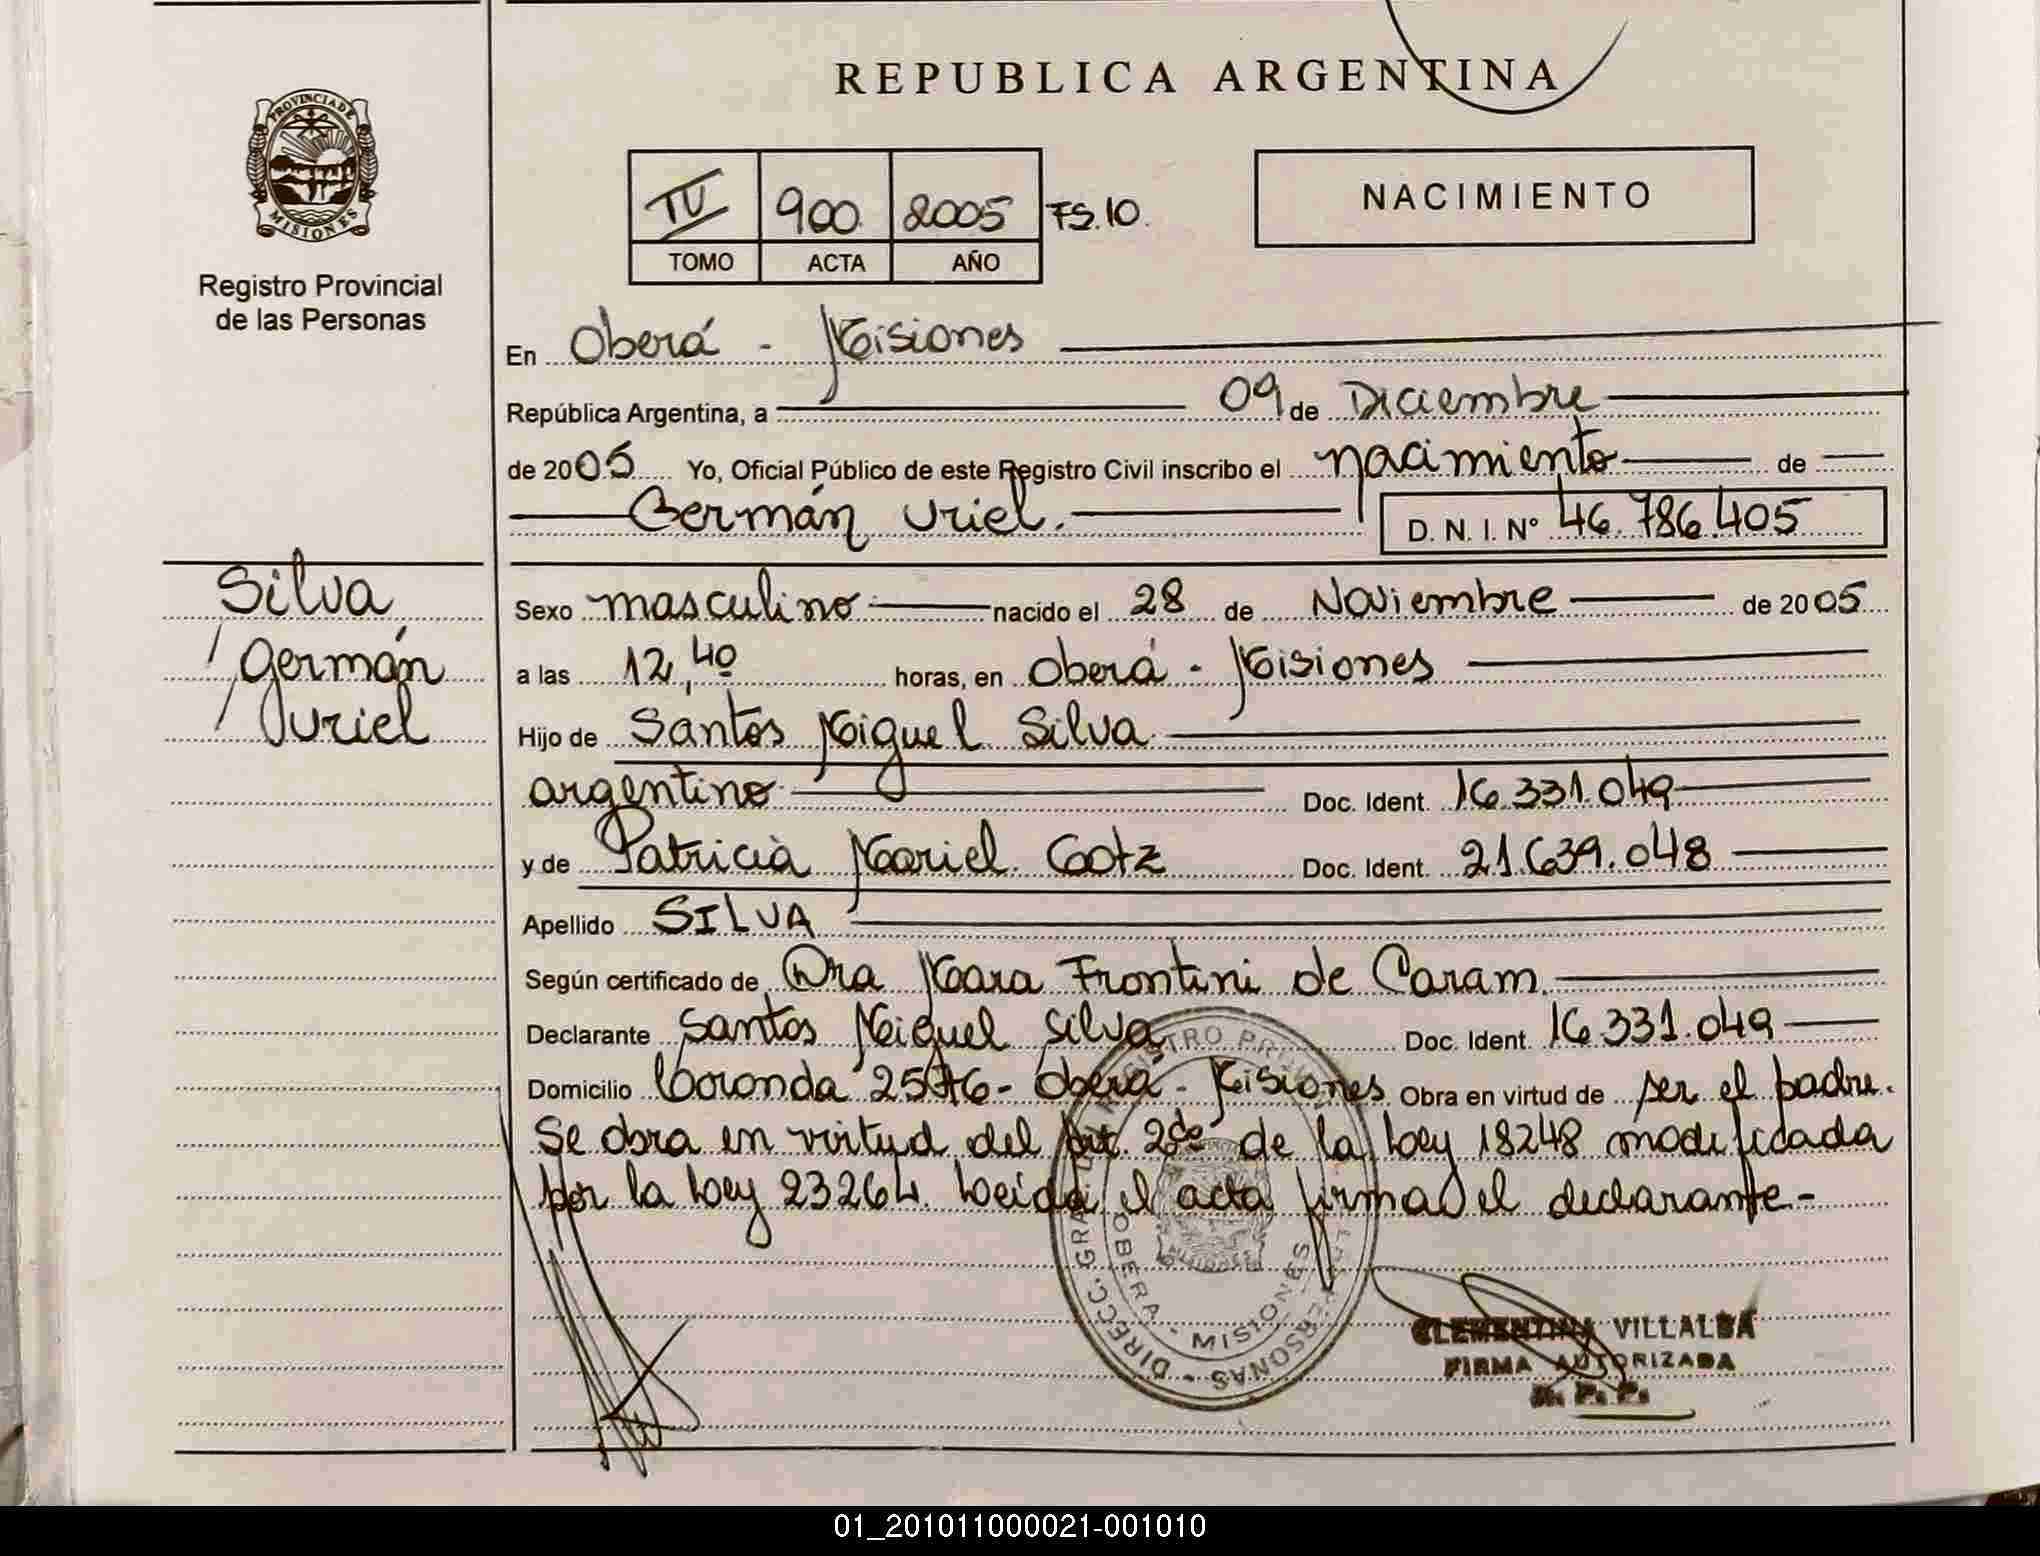 REPUBLICA ARGENTINA
PROVINCIA DE
MISIONES
Registro Provincial
de las Personas
IV 900 2005 FS.10.
TOMO ACTA AÑO
NACIMIENTO
En Oberá - Misiones
República Argentina, a 09 de Diciembre
de 2005 Yo, Oficial Público de este Registro Civil inscribo el nacimiento de
Germán Uriel. D. N. I. Nº 46.786.405
Silva
Germán
Uriel
Sexo masculino nacido el 28 de Noviembre de 2005
a las 12,40 horas, en Oberá - Misiones
Hijo de Santos Miguel Silva
argentino Doc. Ident. 16.331.049
y de Patricia Mariel Gotz Doc. Ident. 21.639.048
Apellido SILVA
Según certificado de Dra Mara Frontini de Caram.
Declarante Santos Miguel Silva Doc. Ident. 16.331.049
Domicilio Coronda 2576 - Oberá - Misiones Obra en virtud de ser el padre.
Se obra en virtud del Art. 2do de la Ley 18248 modificada
por la Ley 23264. Leida el acta firma el declarante-
OBERA - MISIONES
CLEMENTINA VILLALBA
FIRMA AUTORIZADA
R. P. P.
01_201011000021-001010